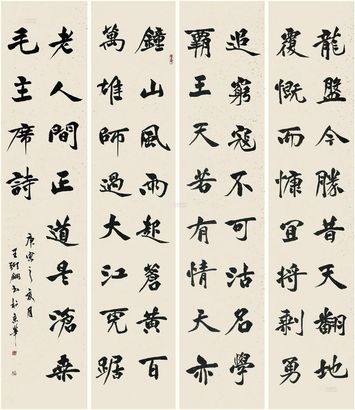 龍盤今勝昔天翻地
覆慨而慷宜將剩勇
追窮寇不可沽名學
霸王天若有情天亦
鐘山風雨起蒼黃百
萬雄師過大江虎踞
老人間正道是滄桑
毛主席詩
庚寅之夏月
王